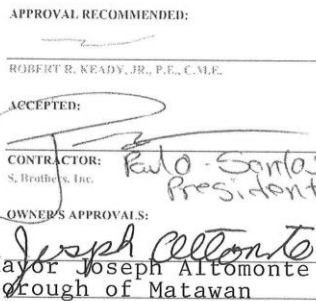 APPROVAL RECOMMENDED:
ROBERT R. KEADY, JR., P.E., C.M.E.
ACCEPTED:
CONTRACTOR: Paulo - Santos
S. Brothers, Inc. President
OWNER'S APPROVALS:
Joseph Altomonte
ayor Joseph Altomonte
orough of Matawan